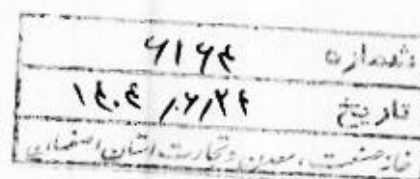 شماره ۶۱۶۴
تاریخ ۱۴۰۴/۶/۲۴
خانه صنعت، معدن و تجارت استان اصفهان